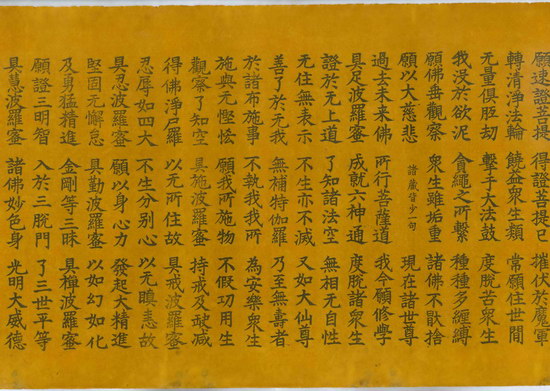 願速證菩提 得證菩提已 摧伏於魔軍
轉清浄法輪 饒益衆生類 常願住世間
无量俱胝劫 擊于大法鼓 度脫苦衆生
我沒於欲泥 貪繩之所繫 種種多纏縛
願佛垂觀察 衆生雖垢重 諸佛不猒捨
願以大慈悲 諸藏皆少一句 現在諸世尊
過去未來佛 所行菩薩道 我今願修學
具足波羅蜜 成就六神通 度脫諸衆生
證於无上道 了知諸法空 無相无自性
无住無表示 不生亦不滅 又如大仙尊
善了於无我 無補特伽羅 乃至無壽者
於諸布施事 不執我我所 為安樂衆生
施與无慳悋 願我所施物 不假功用生
觀察了知空 具施波羅蜜 持戒及缺減
得佛浄尸羅 以无所住故 具戒波羅蜜
忍辱如四大 不生分别心 以无瞋恚故
具忍波羅蜜 願以身心力 發起大精進
堅固无懈怠 具勤波羅蜜 以如幻如化
及勇猛精進 金剛等三昧 具禪波羅蜜
願證三明智 入於三脫門 了三世平等
具慧波羅蜜 諸佛妙色身 光明大威德